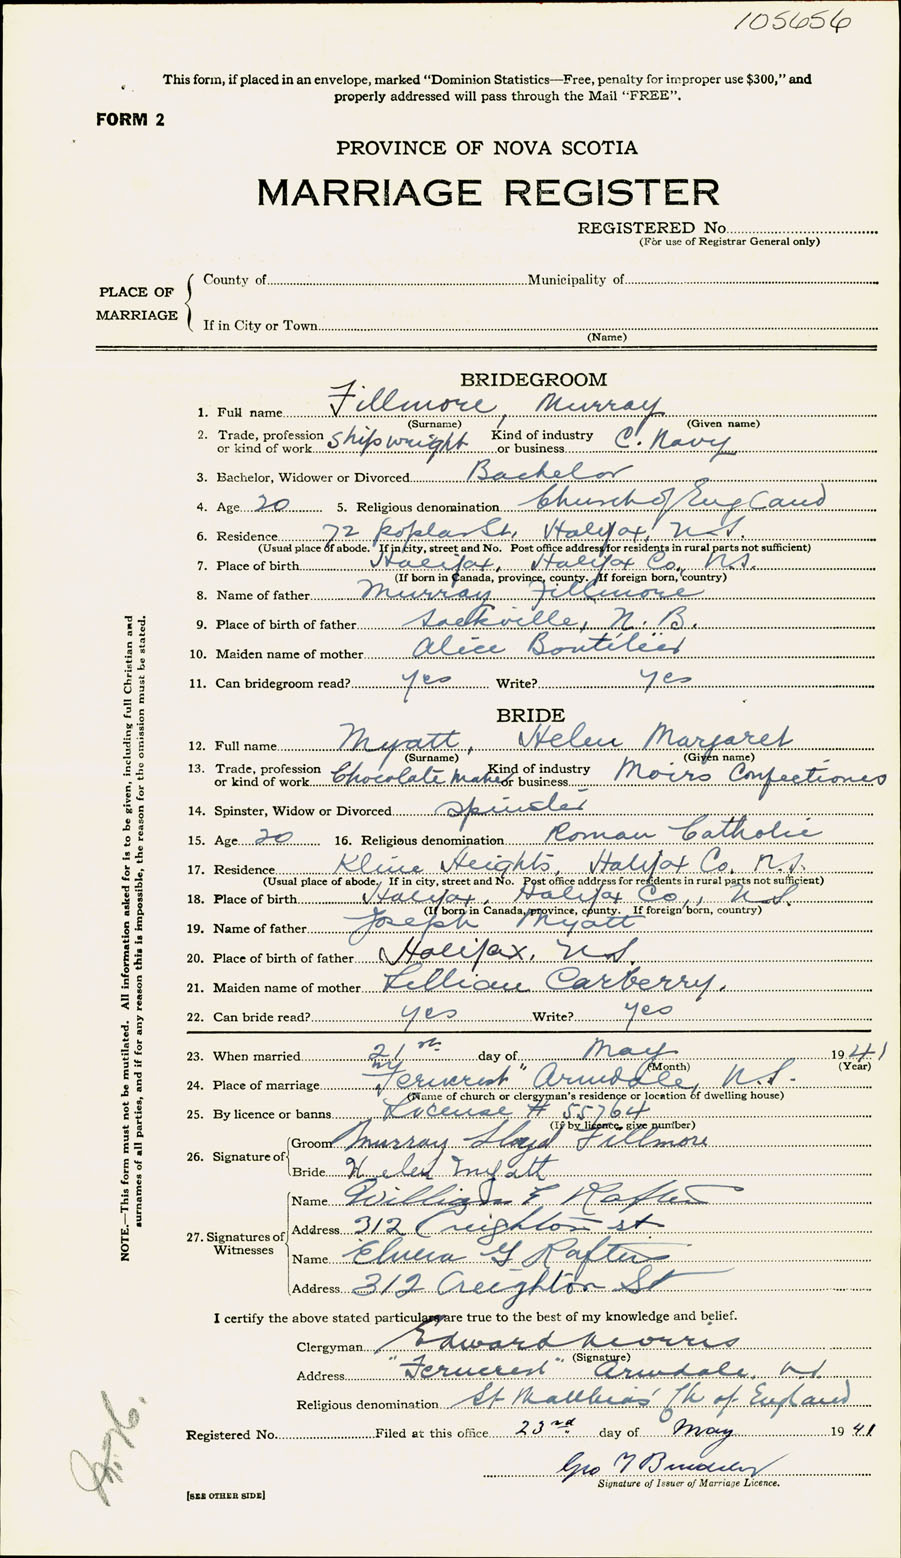 105656
This form, if placed in an envelope, marked "Dominion Statistics—Free, penalty for improper use $300," and
properly addressed will pass through the Mail "FREE".
FORM 2
PROVINCE OF NOVA SCOTIA
MARRIAGE REGISTER
REGISTERED No.
(For use of Registrar General only)
PLACE OF MARRIAGE
County of Municipality of
If in City or Town
(Name)
BRIDEGROOM
1. Full name Fillmore, Murray
(Surname) (Given name)
2. Trade, profession or kind of work Shipwright Kind of industry or business C. Navy
3. Bachelor, Widower or Divorced Bachelor
4. Age 20 5. Religious denomination Church of England
6. Residence 72 Poplar St, Halifax, N.S.
(Usual place of abode. If in city, street and No. Post office address for residents in rural parts not sufficient)
7. Place of birth Halifax, Halifax Co., N.S.
(If born in Canada, province, county. If foreign born, country)
8. Name of father Murray Fillmore
9. Place of birth of father Sackville, N.B.
10. Maiden name of mother Alice Boutilier
11. Can bridegroom read? yes Write? yes
BRIDE
12. Full name Myatt, Helen Margaret
(Surname) (Given name)
13. Trade, profession or kind of work Chocolate maker Kind of industry or business Moirs Confectioners
14. Spinster, Widow or Divorced Spinster
15. Age 20 16. Religious denomination Roman Catholic
17. Residence Kline Heights, Halifax Co. N.S.
(Usual place of abode. If in city, street and No. Post office address for residents in rural parts not sufficient)
18. Place of birth Halifax, Halifax Co., N.S.
(If born in Canada, province, county. If foreign born, country)
19. Name of father Joseph Myatt
20. Place of birth of father Halifax, N.S.
21. Maiden name of mother Lillian Carberry.
22. Can bride read? yes Write? yes
23. When married 21st day of May 1941
(Month) (Year)
24. Place of marriage "Ferncrest" Armdale, N.S.
(Name of church or clergyman's residence or location of dwelling house)
25. By licence or banns License # 55764
(If by licence, give number)
26. Signature of Groom Murray Lloyd Fillmore
Bride Helen Myatt
27. Signatures of Witnesses
Name William E Raftus
Address 312 Creighton st
Name Elvera G Raftus
Address 312 Creighton St
I certify the above stated particulars are true to the best of my knowledge and belief.
Clergyman Edward Morris
(Signature)
Address "Ferncrest" Armdale, N.S.
Religious denomination St Matthias' Ch of England
Registered No. Filed at this office 23rd day of May 1941
Geo
Signature of Issuer of Marriage Licence.
[SEE OTHER SIDE]
NOTE.—This form must not be mutilated. All information asked for is to be given, including full Christian and
surnames of all parties, and if for any reason this is impossible, the reason for the omission must be stated.